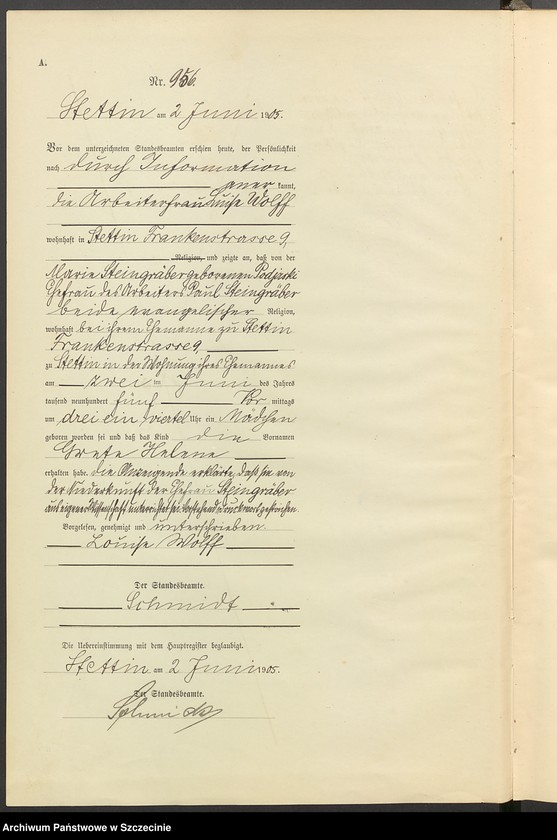 A.
Nr. 956.
Stettin am 2 Juni 1905.
Vor dem unterzeichneten Standesbeamten erschien heute, der Persönlichkeit
nach durch Information
aner kannt,
die Arbeiterfrau Luise Wolff
wohnhaft in Stettin Frankenstrasse 9,
Religion, und zeigte an, daß von der
Marie Steingräber geborenen
Ehefrau des Arbeiters Paul Steingräber
beide evangelischer Religion,
wohnhaft bei ihrem Ehemanne zu Stettin
Frankenstrasse 9,
zu Stettin in der Wohnung ihres Ehemannes
am zwei ten Juni des Jahres
tausend neunhundert fünf Vor mittags
um drei ein viertel Uhr ein Mädchen
geboren worden sei und daß das Kind die Vornamen
Grete Helene
erhalten habe. Die Anzeigende erklärte, daß sie von
der Niederkunft der Ehefrau Steingräber
aus eigener Wissenschaft unterrichtet sei. Vorstehend Druckwort gestrichen.
Vorgelesen, genehmigt und unterschrieben.
Louise Wolff
Der Standesbeamte.
Schmidt
Die Uebereinstimmung mit dem Hauptregister beglaubigt.
Stettin am 2 Juni 1905.
Der Standesbeamte.
Schmidt
Archiwum Państwowe w Szczecinie